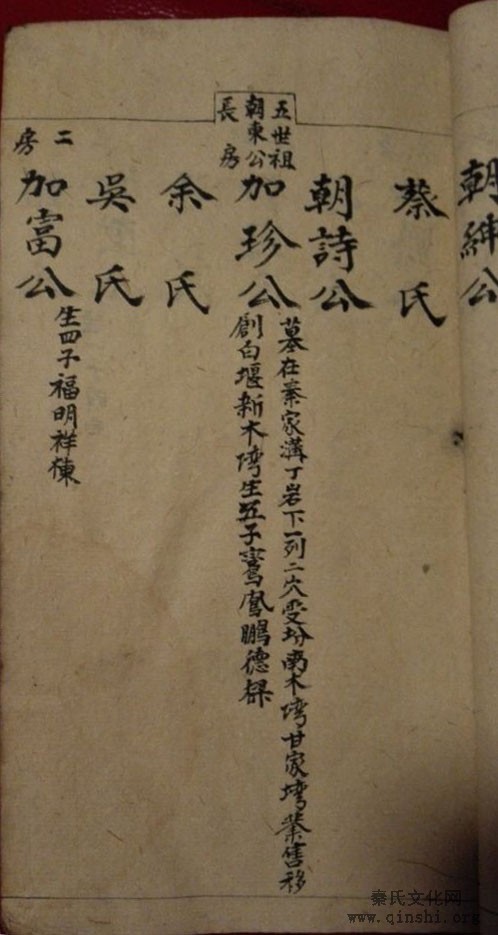 朝紳公
蔡氏
朝詩公
墓在秦家溝丁岩下一列二穴受坋南木塆甘家塆業售移
五世祖
朝東公
長房
加珍公
創白堰新木塆生五子鸞鳳鵬德樑
余氏
吳氏
二房
加富公
生四子福明祥棟
秦氏文化网
www.qinshi.org